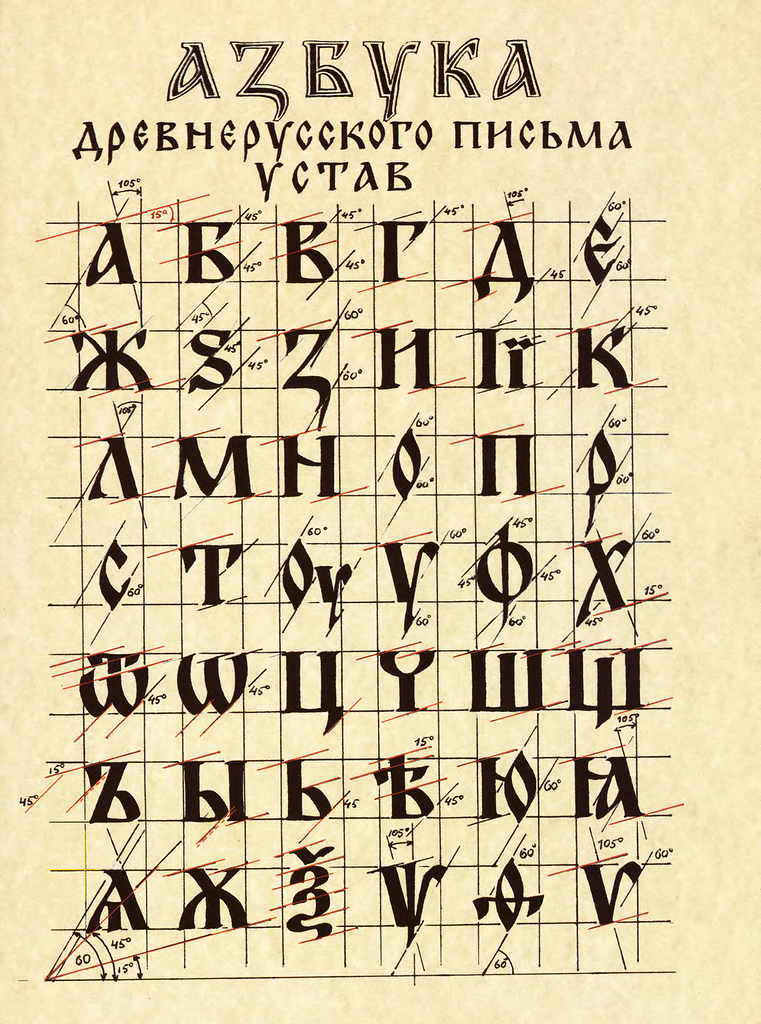 АЗБУКА
ДРЕВНЕРУССКОГО ПИСЬМА
УСТАВ
105° 15° 45° 45° 45° 105° 60°
А Б В Г Д Є
45° 45° 45 60°
60° 45° 60° 45°
Ж Ѕ З И Ї К
45° 45° 60°
105° 60° 60°
Л М Н О П Р
60° 60°
60° 60° 45° 60°
С Т Оу У Ф Х
60° 45° 45° 15°
60° 60° 45°
Ѿ Ѡ Ц Ч Ш Щ
45° 45°
15° 15° 105°
Ъ Ы Ь Ѣ Ю Ꙗ
45° 45 45° 60°
105° 60° 105° 60°
Ѧ Ѫ Ѯ Ѱ Ѳ Ѵ
60 45° 15° 60°